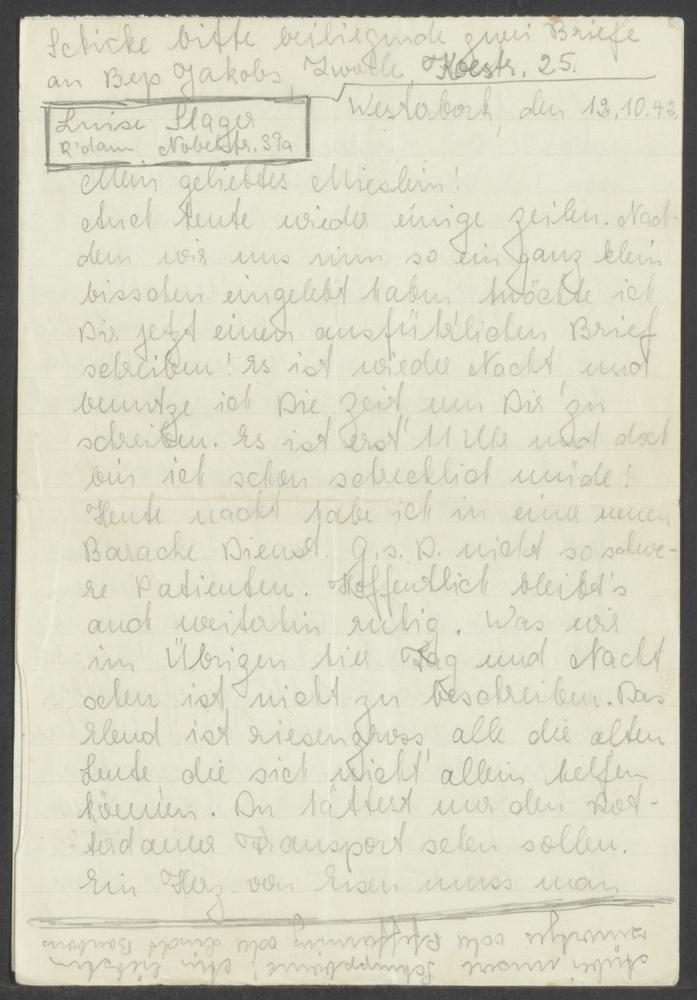 Schicke bitte beiliegende zwei Briefe
an Bep Jakobs, Zwolle, Koestr. 25.
Westerbork, den 12.10.42.
Luise Slager
R'dam Nobelstr. 39a
Mein geliebtes Mieslein!
Auch heute wieder einige Zeilen. Nach-
dem wir uns nun so ein ganz klein
bisschen eingelebt haben möchte ich
Dir jetzt einen ausführlichen Brief
schreiben! Es ist wieder Nacht und
benutze ich Die Zeit um Dir zu
schreiben. Es ist erst 11 Uhr und doch
bin ich schon schrecklich müde!
Heute nacht habe ich in einer neuen
Baracke Dienst. G.s.D. nicht so schwe-
re Patienten. Hoffentlich bleibt's
auch weiterhin ruhig. Was wir
im Übrigen hier Tag und Nacht
sehen ist nicht zu beschreiben. Das
Elend ist riesengross, alle die alten
Leute die sich nicht allein helfen
können. Du hättest nur den Rot-
terdamer Transport sehen sollen.
Ein Herz von Eisen muss man
oder Pfefferminz oder Bonbons